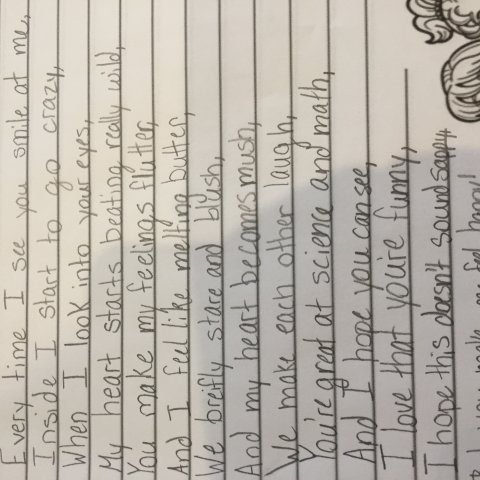 Every time I see you smile at me,
Inside I start to go crazy,
When I look into your eyes,
My heart starts beating really wild,
You make my feelings flutter,
And I feel like melting butter,
We brefly stare and blush,
And my heart becomes mush,
We make each other laugh,
You're great at science and math,
And I hope you can see,
I love that you're funny,
I hope this doesn't sound sappy,
you make me feel happy!